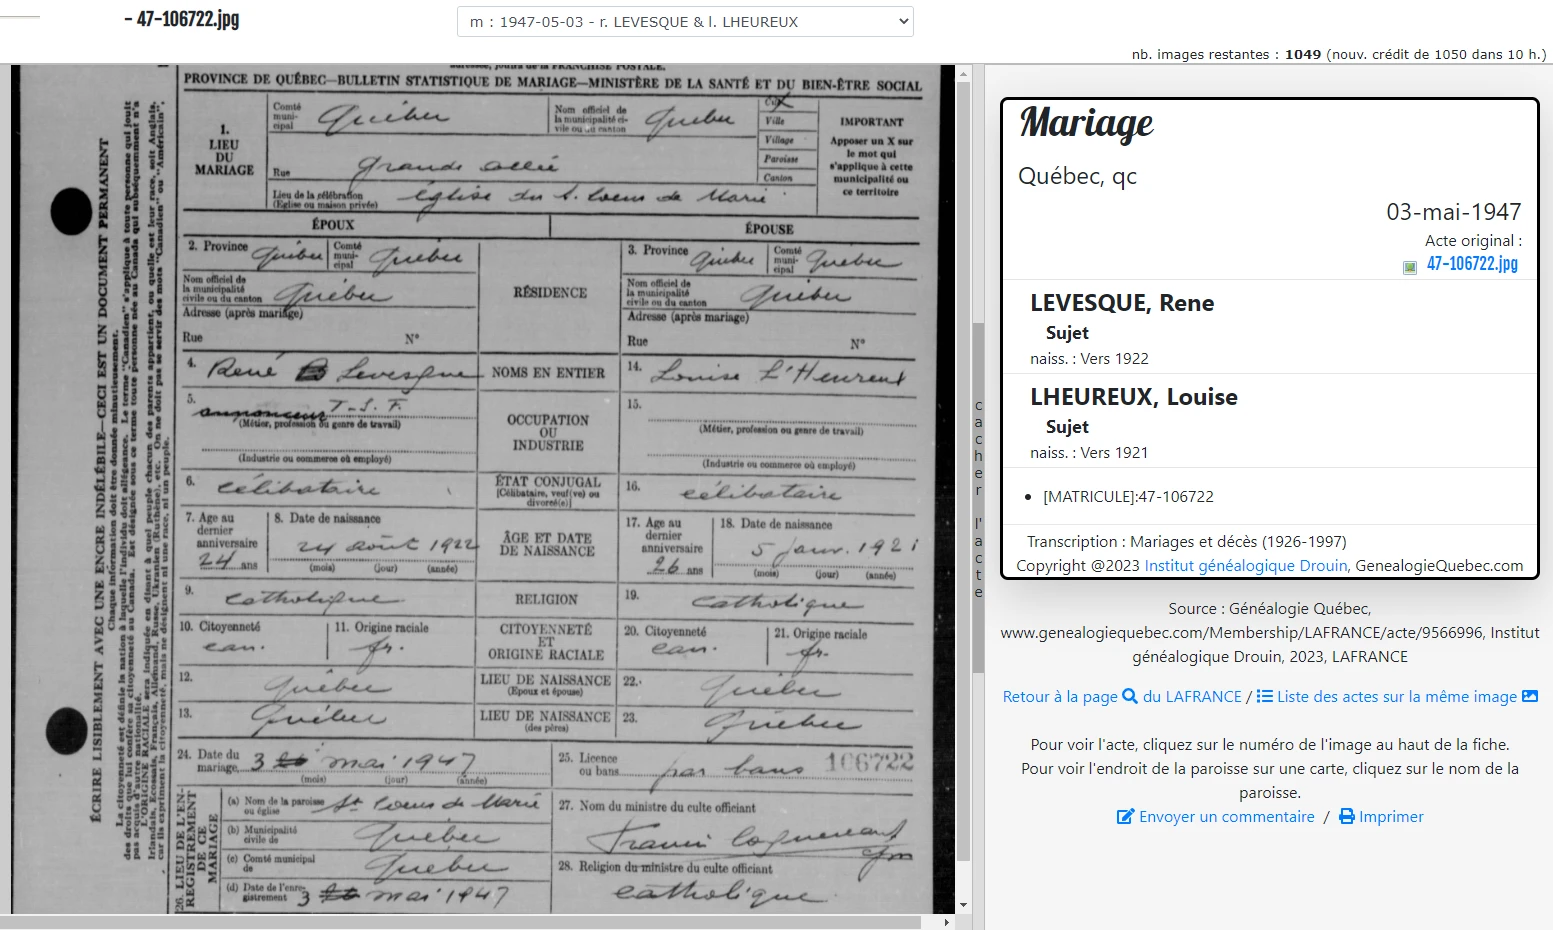 - 47-106722.jpg
m : 1947-05-03 - r. LEVESQUE & l. LHEUREUX
nb. images restantes : 1049 (nouv. crédit de 1050 dans 10 h.)
PROVINCE DE QUÉBEC—BULLETIN STATISTIQUE DE MARIAGE—MINISTÈRE DE LA SANTÉ ET DU BIEN-ÊTRE SOCIAL
ÉCRIRE LISIBLEMENT AVEC UNE ENCRE INDÉLÉBILE—CECI EST UN DOCUMENT PERMANENT
Chaque information doit être donnée minutieusement.
1.
LIEU
DU
MARIAGE
Comté
muni-
cipal
Québec
Nom officiel de
la municipalité ci-
vile ou du canton
Québec
Cité
Ville
Village
Paroisse
Canton
IMPORTANT
Apposer un X sur
le mot qui
s'applique à cette
municipalité ou
ce territoire
Rue
Grande allée
Lieu de la célébration
(Église ou maison privée)
église du S. Coeur de Marie
ÉPOUX
ÉPOUSE
2. Province
Québec
Comté
muni-
cipal
Québec
RÉSIDENCE
3. Province
Québec
Comté
muni-
cipal
Québec
Nom officiel de
la municipalité
civile ou du canton
Québec
Nom officiel de
la municipalité
civile ou du canton
Québec
Adresse (après mariage)
Adresse (après mariage)
Rue
N°
Rue
N°
4.
René
Levesque
NOMS EN ENTIER
14.
Louise L'Heureux
5.
annonceur T-S.F.
(Métier, profession ou genre de travail)
(Industrie ou commerce où employé)
OCCUPATION
OU
INDUSTRIE
15.
(Métier, profession ou genre de travail)
(Industrie ou commerce où employé)
6.
célibataire
ÉTAT CONJUGAL
[Célibataire, veuf(ve) ou
divorcé(e)]
16.
célibataire
7. Age au
dernier
anniversaire
24 ans
8. Date de naissance
24 août 1922
(mois) (jour) (année)
ÂGE ET DATE
DE NAISSANCE
17. Age au
dernier
anniversaire
26 ans
18. Date de naissance
5 janv. 1921
(mois) (jour) (année)
9.
catholique
RELIGION
19.
catholique
10. Citoyenneté
can.
11. Origine raciale
fr.
CITOYENNETÉ
ET
ORIGINE RACIALE
20. Citoyenneté
can.
21. Origine raciale
fr.
12.
Québec
LIEU DE NAISSANCE
(Epoux et épouse)
22.
Québec
13.
Québec
LIEU DE NAISSANCE
(des pères)
23.
Québec
24. Date du
mariage
3 mai 1947
(mois) (jour) (année)
25. Licence
ou bans
par bans
106722
26. LIEU DE L'EN-
REGISTREMENT
DE CE
MARIAGE
(a) Nom de la paroisse
ou église
St Coeur de Marie
(b) Municipalité
civile de
Québec
(c) Comté municipal
de
Québec
(d) Date de l'enre-
gistrement
3 mai 1947
27. Nom du ministre du culte officiant
28. Religion du ministre du culte officiant
catholique
cacher l'acte
Mariage
Québec, qc
03-mai-1947
Acte original :
47-106722.jpg
LEVESQUE, Rene
Sujet
naiss. : Vers 1922
LHEUREUX, Louise
Sujet
naiss. : Vers 1921
• [MATRICULE]:47-106722
Transcription : Mariages et décès (1926-1997)
Copyright @2023 Institut généalogique Drouin, GenealogieQuebec.com
Source : Généalogie Québec,
www.genealogiequebec.com/Membership/LAFRANCE/acte/9566996, Institut
généalogique Drouin, 2023, LAFRANCE
Retour à la page du LAFRANCE / Liste des actes sur la même image
Pour voir l'acte, cliquez sur le numéro de l'image au haut de la fiche.
Pour voir l'endroit de la paroisse sur une carte, cliquez sur le nom de la
paroisse.
Envoyer un commentaire / Imprimer